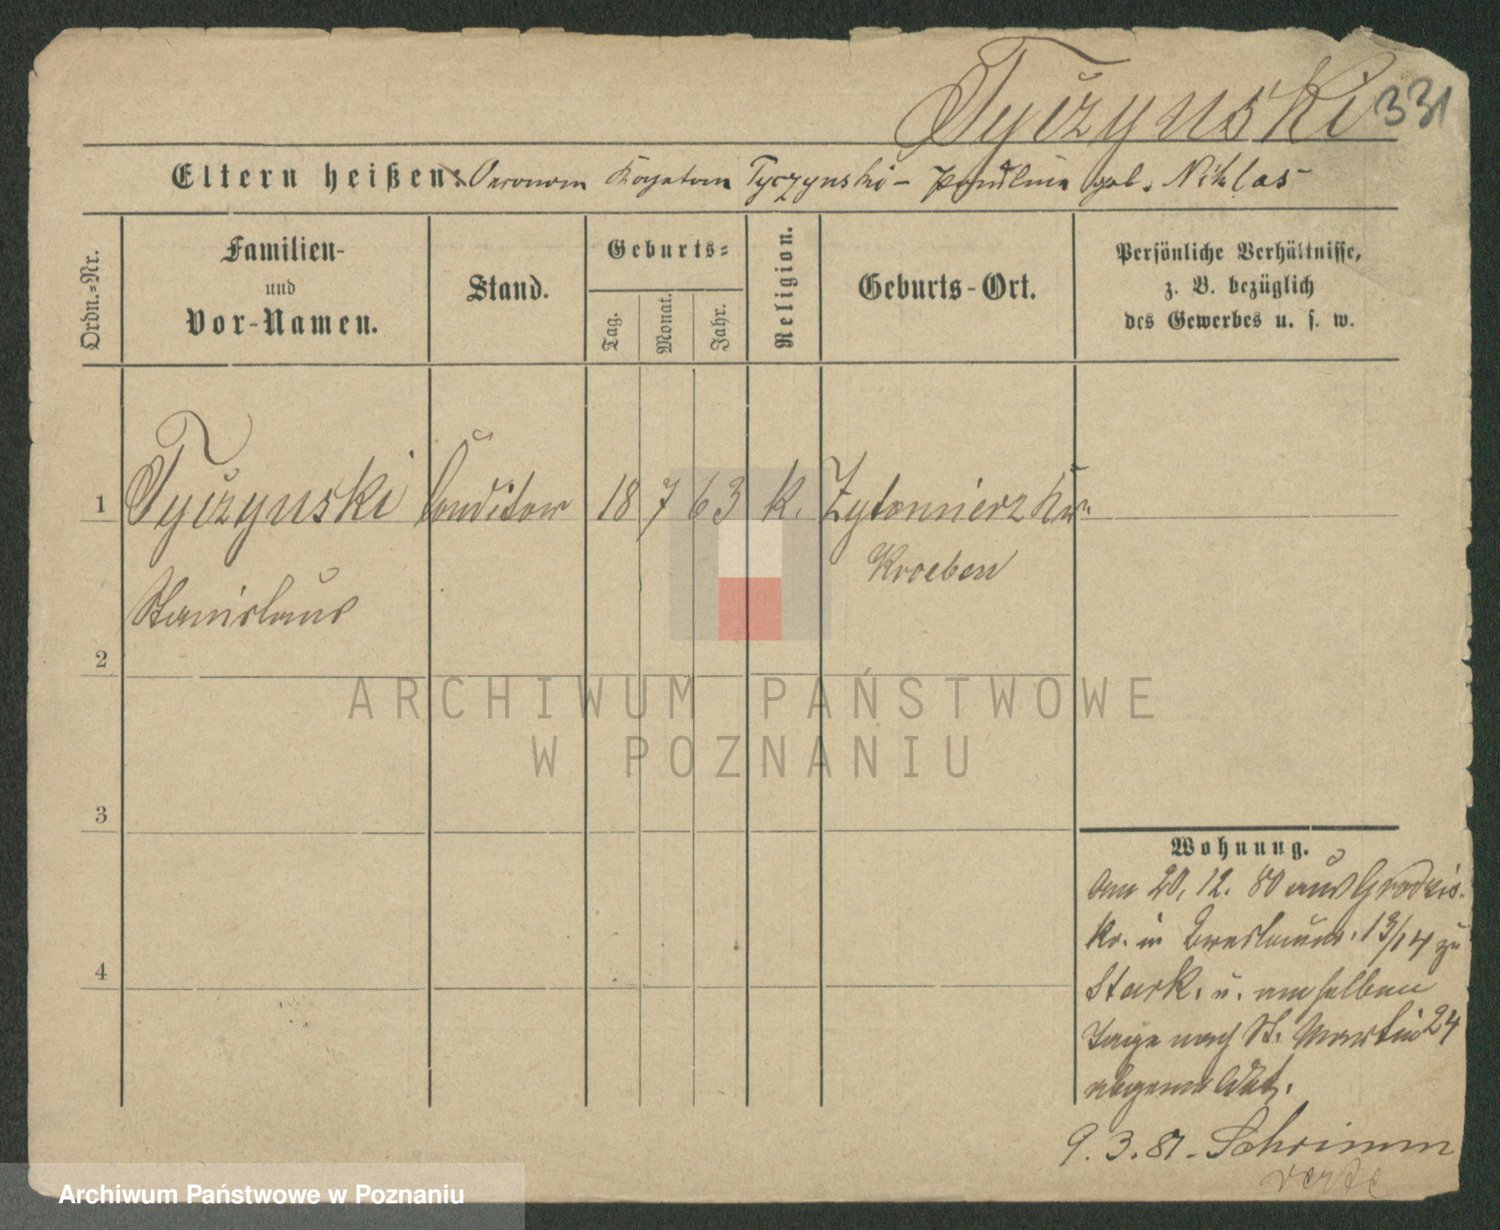 Tyczynski 331
Eltern heißen: Oeconom Kajetan Tyczynski – geb. Niklas
Ordn.-Nr.
Familien-
und
Vor-Namen.
Stand.
Geburts-
Tag.
Monat.
Jahr.
Religion.
Geburts-Ort.
Persönliche Verhältnisse,
z. B. bezüglich
des Gewerbes u. s. w.
1 Tyczynski Conditor 18 7 63 k. Zytomierz Kr.
Kroeben
Stanislaus
2
3
4
Wohnung.
Am 20. 12. 80 aus
in 13/14 zu
Stark. u. am selben
Tage nach St. Martin 24
abgemeldet.
9. 3. 81. Schrimm
ARCHIWUM PAŃSTWOWE
W POZNANIU
Archiwum Państwowe w Poznaniu